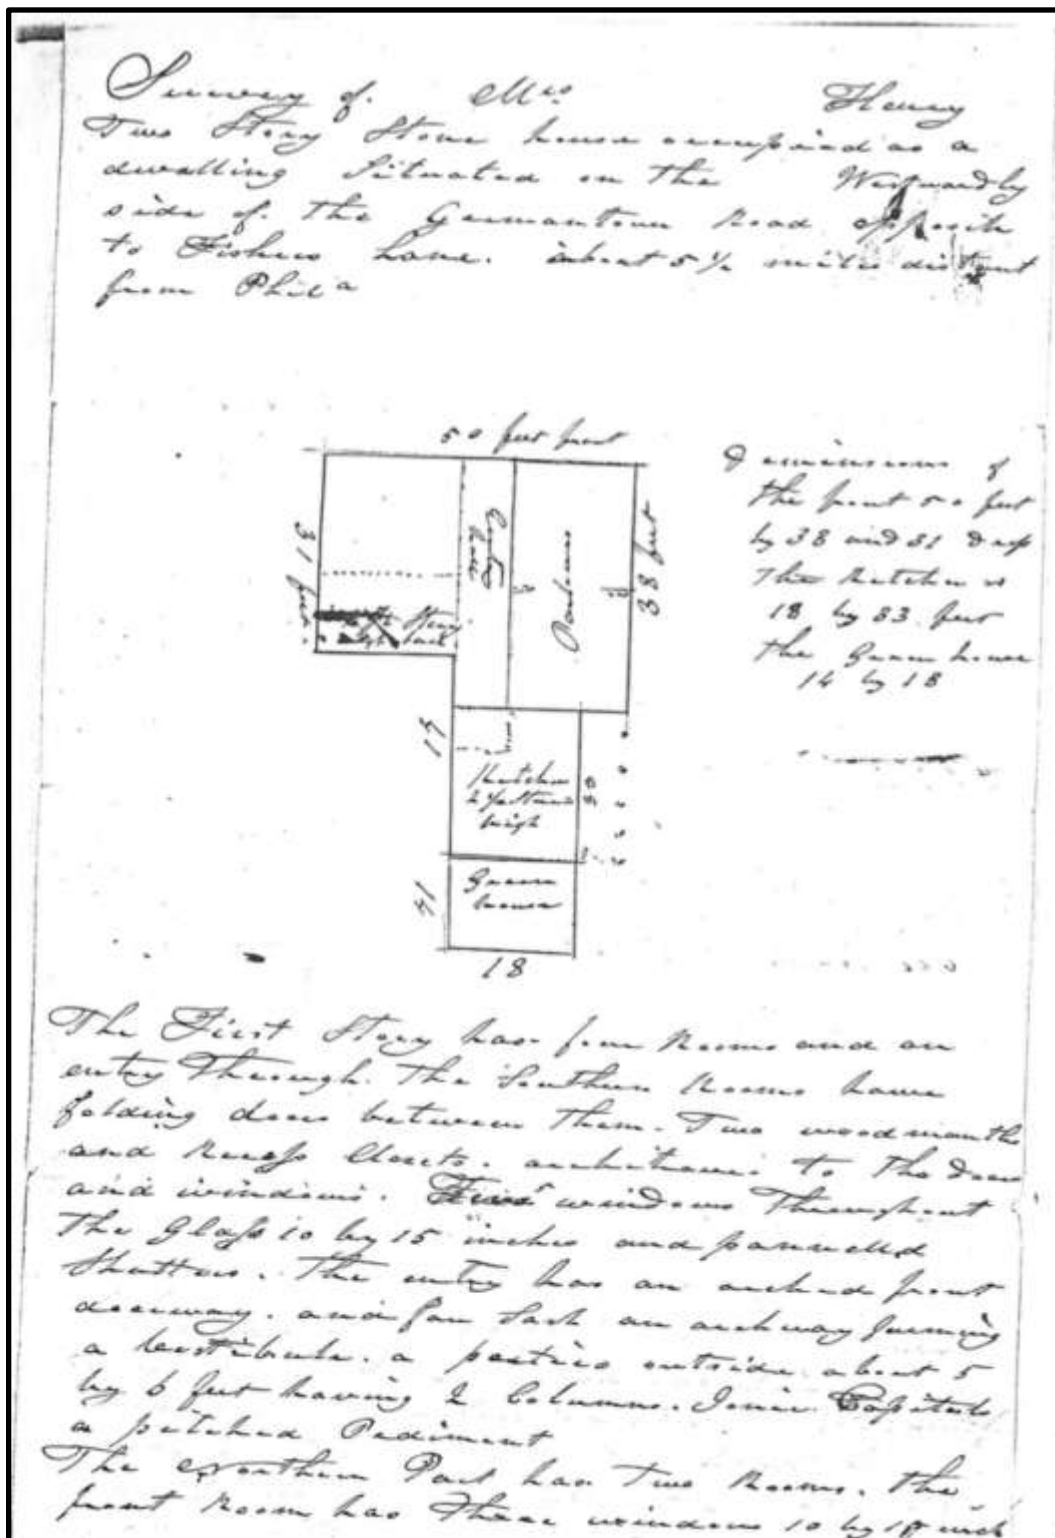 Survey of. Mrs Henry
Two Story Stone house occupied as a
dwelling Situated on the Westwardly
side of. the Germantown Road opposite
to Fishers Lane. about 5 ½ miles distant
from Phila
50 feet front
31 feet
38 feet
Parlours
Story
Kitchen
high
Green
house
14
18
Deminsions of
the front 50 feet
by 38 and 31 deep
The Kitchen is
18 by 33 feet
the Green house
14 by 18
The First Story has four Rooms and an
entry Through. The Southern Rooms have
folding doors between them. Two wood mantles
and Recess Closets. architraves to the doors
and windows. windows Throughout
The Glass 10 by 15 inches and pannelled
Shutters. The entry has an arched front
doorway. and fan Sash an archway forming
a vestibule. a portico outside about 5
by 6 feet having 2 Columns. Ionic Capitals
a pitched Pediment
The Part has Two Rooms. the
front Room has Three windows 10 by 15 inch